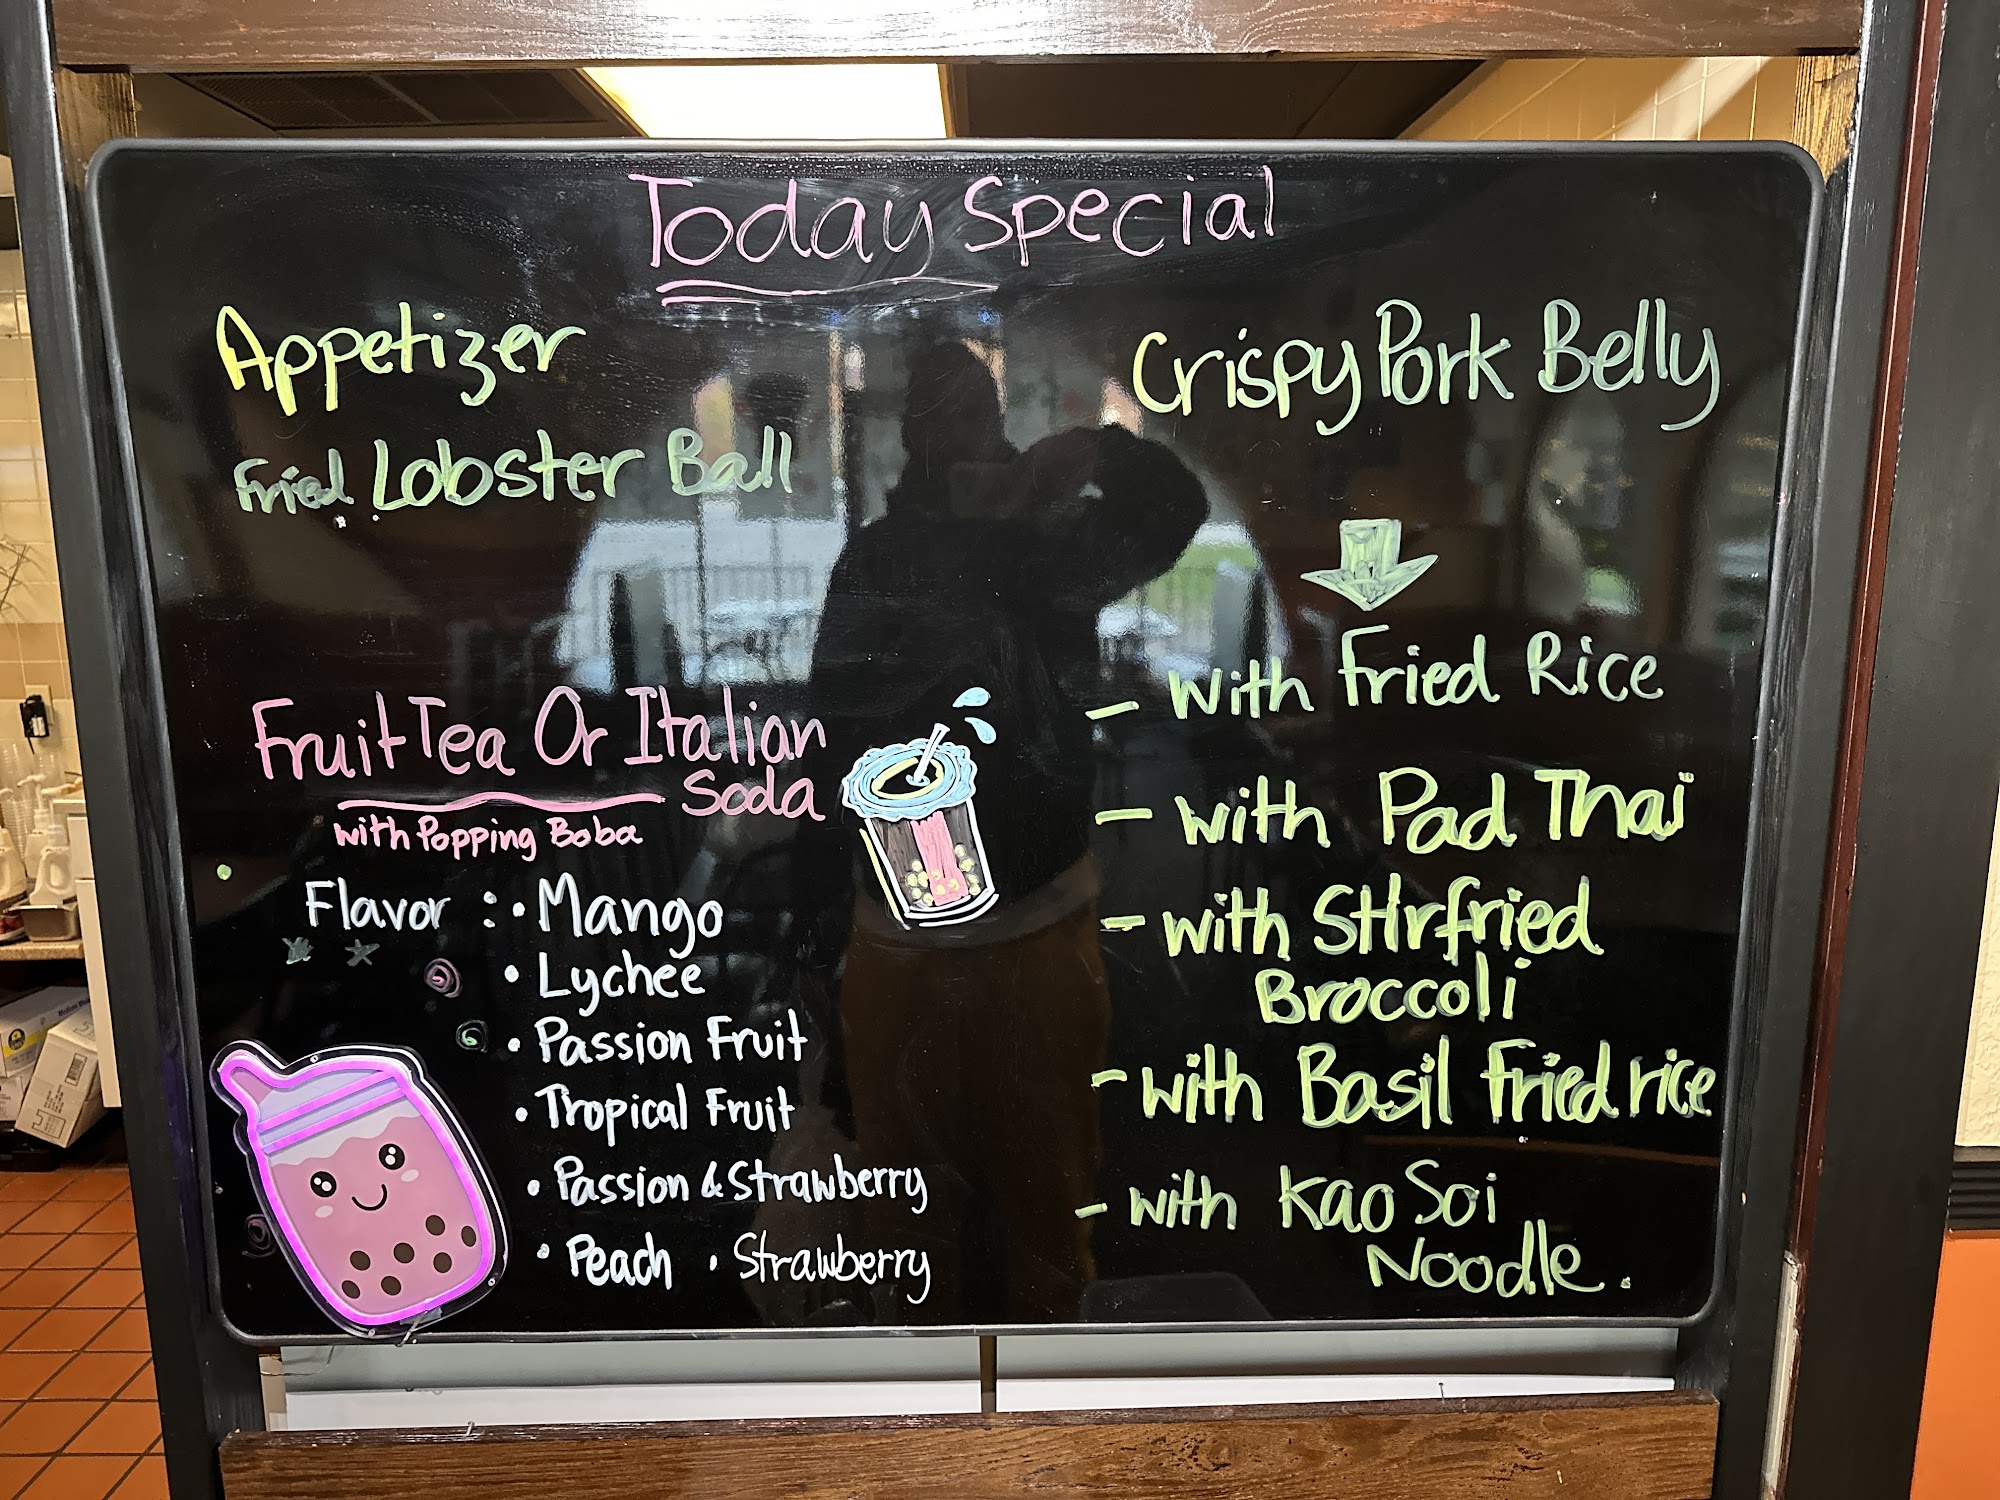 Today Special
Appetizer
Fried Lobster Ball
Fruit Tea Or Italian
Soda
with Popping Boba
Flavor : • Mango
• Lychee
• Passion Fruit
• Tropical Fruit
• Passion & Strawberry
• Peach • Strawberry
Crispy Pork Belly
- with Fried Rice
- with Pad Thai
- with Stirfried
Broccoli
- with Basil Fried rice
- with Kao Soi
Noodle.